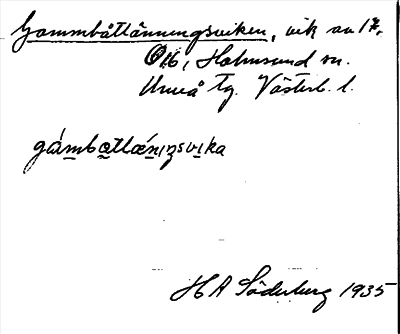 Gammbåtlänningsviken, vik av 17,
Ö16, Holmsund sn.
Umeå tg. Västerb. l.
gámbatlǽniŋsvika
H A Söderberg 1935